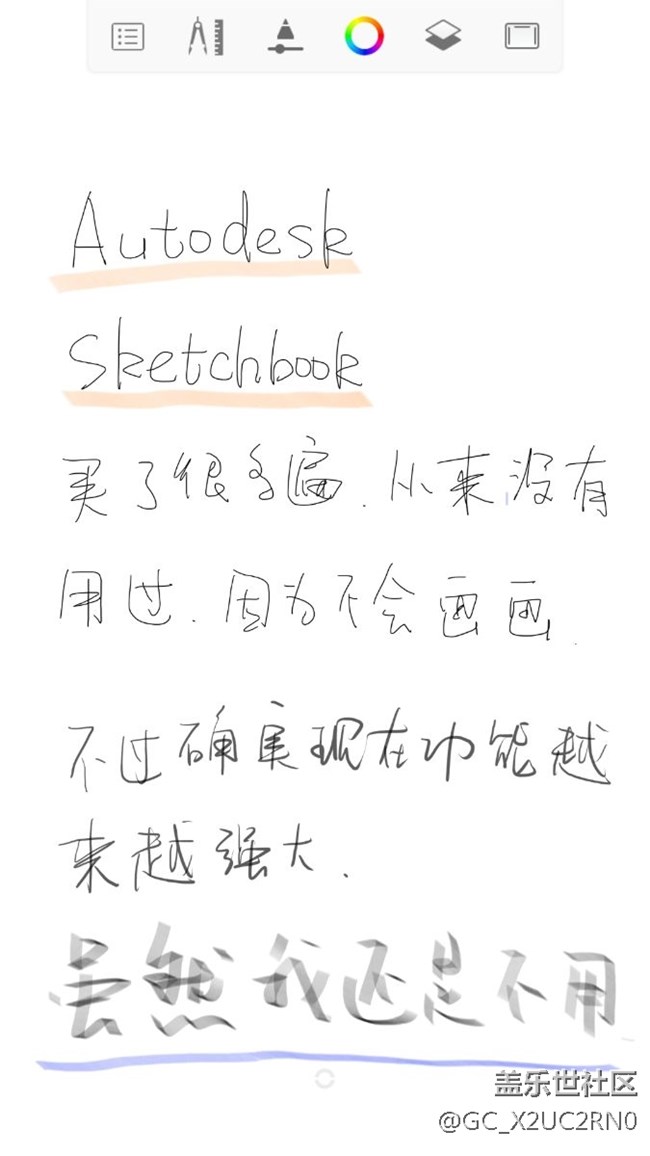 Autodesk
Sketchbook
买了很多遍.从来没有
用过.因为不会画画.
不过确实现在功能越
来越强大.
虽然我还是不用
盖乐世社区
@GC_X2UC2RN0